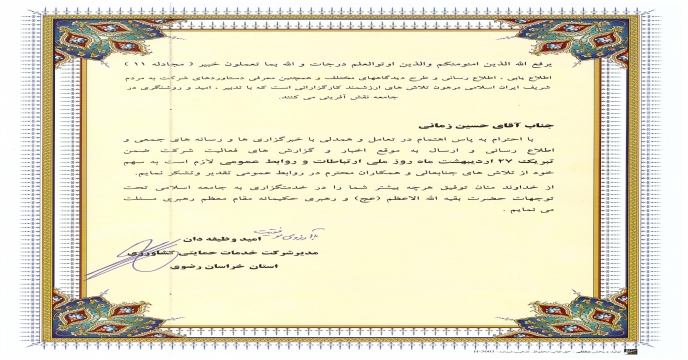 یرفع الله الذین امنومنکم والذین اوتوالعلم درجات و الله بما تعملون خبیر ( مجادله ۱۱ )
اطلاع یابی ، اطلاع رسانی و طرح دیدگاههای مختلف و همچنین معرفی دستاوردهای شرکت به مردم
شریف ایران اسلامی مرهون تلاش های ارزشمند کارگزارانی است که با تدبیر ، امید و روشنگری در
جامعه نقش آفرینی می کنند.
جناب آقای حسین زمانی
با احترام به پاس اهتمام در تعامل و همدلی با خبرگزاری ها و رسانه های جمعی و
اطلاع رسانی و ارسال به موقع اخبار و گزارش های فعالیت شرکت ضمن
تبریک ۲۷ اردیبهشت ماه روز ملی ارتباطات و روابط عمومی لازم است به سهم
خود از تلاش های جنابعالی و همکاران محترم در روابط عمومی تقدیر وتشکر نمایم.
از خداوند منان توفیق هرچه بیشتر شما را در خدمتگزاری به جامعه اسلامی تحت
توجهات حضرت بقیه الله الاعظم (عج) و رهبری حکیمانه مقام معظم رهبری مسئلت
می نمایم .
با آرزوی موفقیت
امید وظیفه دان
مدیرشرکت خدمات حمایتی کشاورزی
استان خراسان رضوی